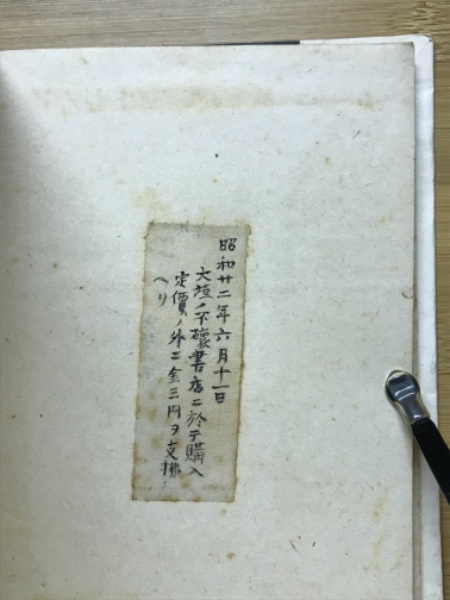 昭和廿二年六月十一日
大垣ノ不礙書店ニ於テ購入
定價ノ外ニ金三円ヲ支拂
ヘリ